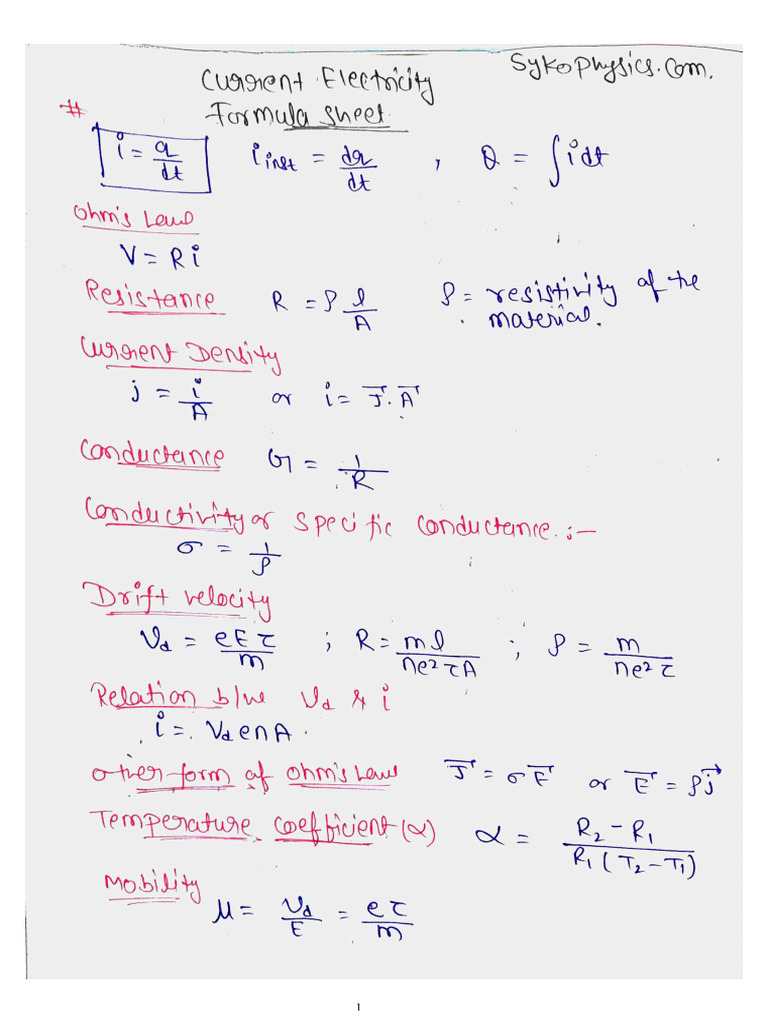 Current Electricity
SykoPhysics.Com.
Formula sheet
# i = q/dt i inst = dq/dt , Q = ∫idt
Ohm's Law
V = Ri
Resistance R = ρ l/A ρ = resistivity of the
material.
Current Density
j = i/A or i = J⃗.A⃗
Conductance G = 1/R
Conductivity or specific conductance :-
σ = 1/ρ
Drift velocity
Vd = eEτ/m ; R = ml/ne²τA ; ρ = m/ne²τ
Relation b/w Vd & i
i = VdenA.
other form of ohm's Law J⃗ = σE⃗ or E⃗ = ρj⃗
Temperature coefficient (α) α = R₂-R₁/R₁(T₂-T₁)
Mobility
μ = Vd/E = eτ/m
1